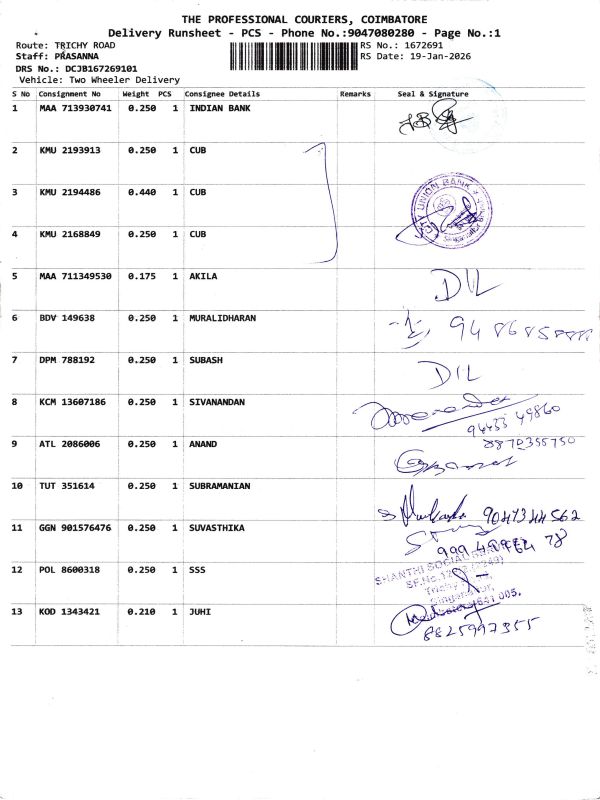 THE PROFESSIONAL COURIERS, COIMBATORE
Delivery Runsheet - PCS - Phone No.:9047080280 - Page No.:1
Route: TRICHY ROAD RS No.: 1672691
Staff: PRASANNA RS Date: 19-Jan-2026
DRS No.: DCJB167269101
Vehicle: Two Wheeler Delivery
S No Consignment No Weight PCS Consignee Details Remarks Seal & Signature
1 MAA 713930741 0.250 1 INDIAN BANK
2 KMU 2193913 0.250 1 CUB
3 KMU 2194486 0.440 1 CUB
CITY UNION BANK
4 KMU 2168849 0.250 1 CUB
5 MAA 711349530 0.175 1 AKILA DIL
6 BDV 149638 0.250 1 MURALIDHARAN
7 DPM 788192 0.250 1 SUBASH DIL
8 KCM 13607186 0.250 1 SIVANANDAN
94433 49860
9 ATL 2086006 0.250 1 ANAND 8870355750
10 TUT 351614 0.250 1 SUBRAMANIAN
9047344562
11 GGN 901576476 0.250 1 SUVASTHIKA
12 POL 8600318 0.250 1 SSS
SHANTHI SOCIAL
13 KOD 1343421 0.210 1 JUHI
641 005.
8825997355